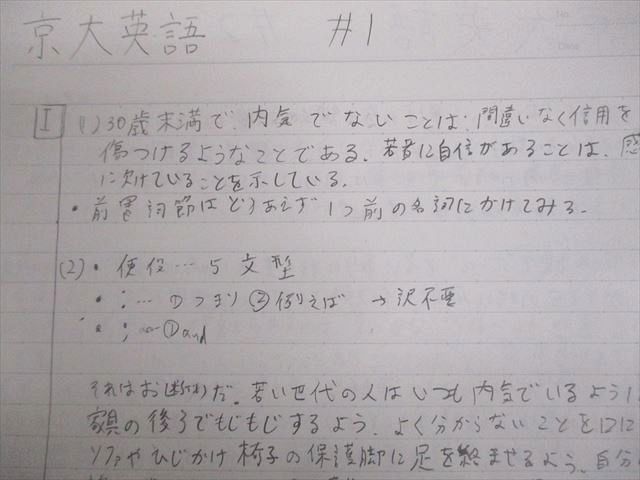 京大英語 #1
I (1) 30歳未満で、内気でないことは、間違いなく信用を
傷つけるようなことである。若者に自信があることは、感
に欠けていることを示している。
・前置詞節はとりあえず1つ前の名詞にかけてみる。
(2)・使役…5文型
・:…①つまり ②例えば →訳不要
・;…①and
それはお断りだ。若い世代の人はいつも内気でいるように
家具の後ろでもじもじするよう、よく分からないことを口に
ソファやひじかけ椅子の保護脚に足を絡ませるよう、自分